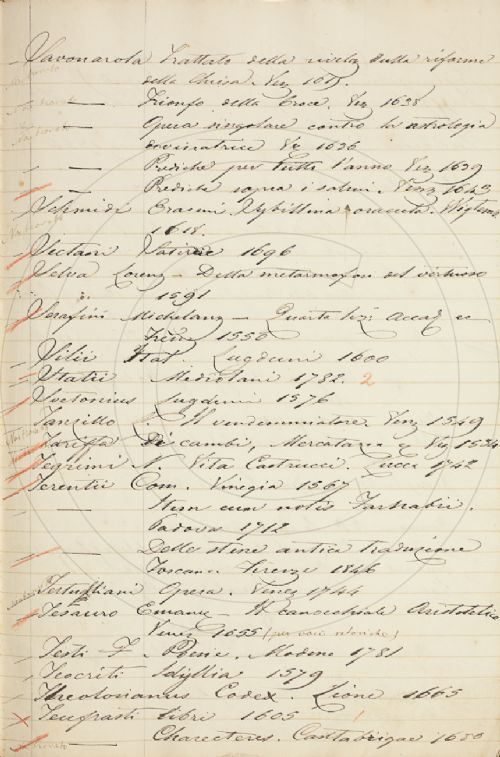 Savonarola Trattato della rivelaz. dalla riforme
della Chiesa. Ven 16
— Trionfo della Croce. Ven 1638
— Opera singolare contro la astrologia
divinatrice Ve 1636
— Prediche per tutti l'anno Ven 1639
— Prediche sopra i salmi. Venez 1643
Schmidt Erasmi. Sybillina oracula.
1618.
Sectani Satirae 1696
Selva Lorenz — Della metamorfosi del virtuoso
1591
Serafini Michelang — Quarta lez: Accad ec
Firenze 1550
Silii Ital Lugduni 1600
Statii Mediolani 1782. 2
Svetonius Lugduni 1576
Tansillo L. Il vendemmiatore. Venz 1549
Tariffa Di cambi, Mercatanzie e Ven 1534
Tegrimi N Vita Castrucci. Lucca 1742
Terentii Com. Vinegia 1567
— Item cum notis Farnabii.
Padova 1712
— Delle stine antica traduzione
Toscana Firenze 1846
Tertulliani Opera. Venez 1744
Tesauro Emanue — Il canocchiale Aristotelico
Venez 1655 (per voci retoriche)
Testi F. Poesie. Modena 1781
Teocriti Idyllia 1579
Theodosianus Codex. Lione 1665
Teufrasti libri 1605
Charecteres. Cantabrigae 1680